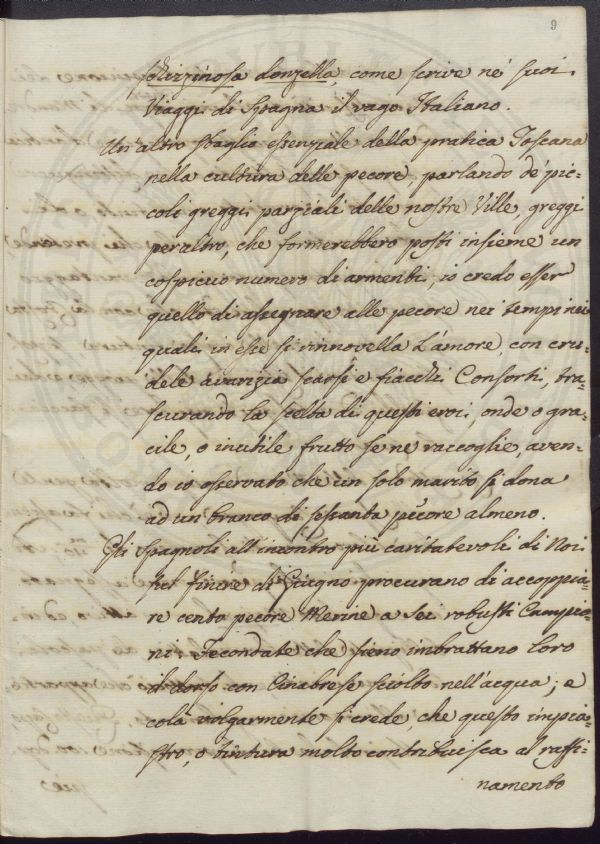 9
schizzinosa donzella, come scrive ne' suoi
Viaggi di Spagna il vago Italiano.
Un'altro sbaglio essenziale della pratica Toscana
nella cultura delle pecore, parlando de' pic-
coli greggi parziali delle nostre Ville, greggi
peraltro, che formerebbero posti insieme un
cospicuo numero di armenti, io credo esser
quello di assegnare alle pecore nei tempi nei
quali in esse si rinnovella l'amore, con cru-
dele avarizia scarsi e fiacchi Consorti, tra-
scurando la scelta di questi eroi, onde o gra-
cile, o inutile frutto se ne raccoglie, aven-
do io osservato che un solo marito si dona
ad un branco di sessanta pecore almeno.
Gli Spagnoli all'incontro più caritatevoli di Noi
sul finire di Giugno procurano di accoppia-
re cento pecore Merine a sei robusti Campio-
ni. Fecondate che sieno imbrattano loro
il dorso con Cinabrese sciolto nell'acqua; e
colà volgarmente si crede, che questo impia-
stro, o tintura molto contribuisca al raffi-
namento